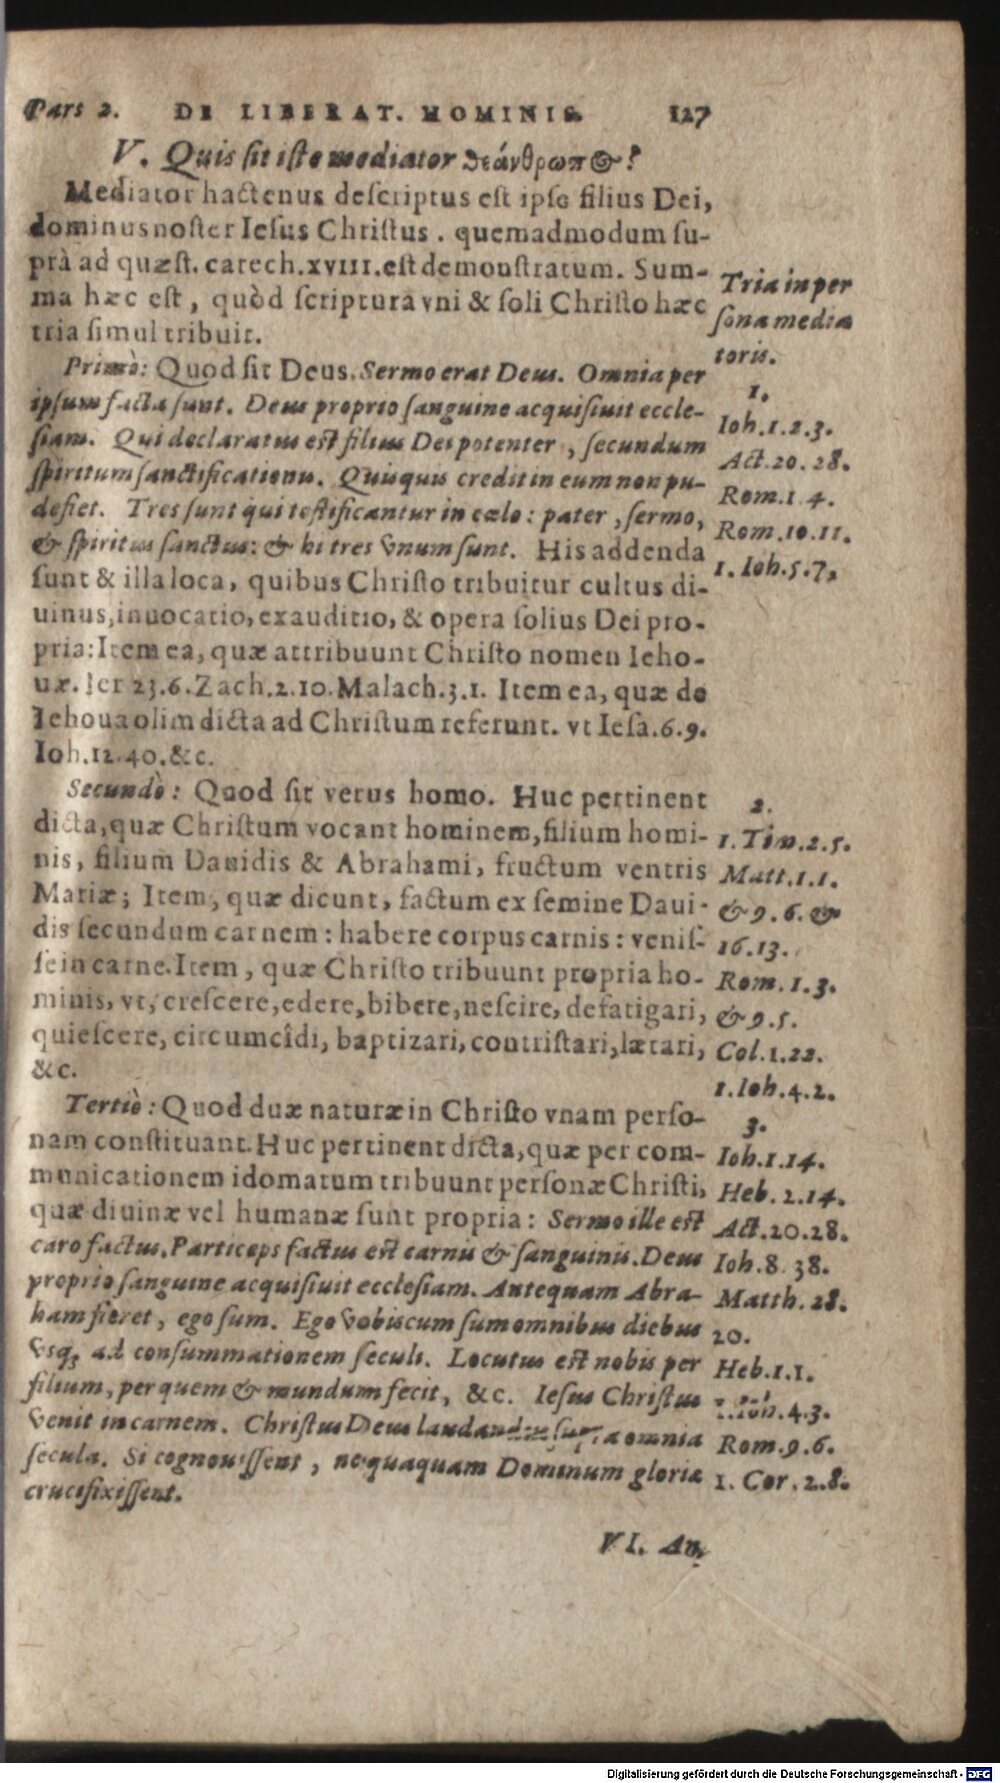 Pars 2. DE LIBERAT. HOMINIS. 127
V. Quis sit iste mediator θεάνθρωπος?
Mediator hactenus descriptus est ipse filius Dei,
dominus noster Iesus Christus. quemadmodum su-
prà ad quæst. catech. xviii. est demonstratum. Sum-
ma hæc est, quòd scriptura vni & soli Christo hæc
tria simul tribuit.
Primò: Quod sit Deus. Sermo erat Deus. Omnia per
ipsum facta sunt. Deus proprio sanguine acquisiuit eccle-
siam. Qui declaratus est filius Dei potenter, secundum
spiritum sanctificationis. Quisquis credit in eum non pu-
defiet. Tres sunt qui testificantur in cœlo: pater, sermo,
& spiritus sanctus: & hi tres vnum sunt. His addenda
sunt & illa loca, quibus Christo tribuitur cultus di-
uinus, inuocatio, exauditio, & opera solius Dei pro-
pria: Item ea, quæ attribuunt Christo nomen Ieho-
uæ. Ier 23.6. Zach.2.10. Malach.3.1. Item ea, quæ de
Iehoua olim dicta ad Christum referunt. vt Iesa.6.9.
Ioh.12.40. &c.
Secundò: Quod sit verus homo. Huc pertinent
dicta, quæ Christum vocant hominem, filium homi-
nis, filium Dauidis & Abrahami, fructum ventris
Mariæ; Item, quæ dicunt, factum ex semine Daui-
dis secundum carnem: habere corpus carnis: venis-
se in carne. Item, quæ Christo tribuunt propria ho-
minis, vt, crescere, edere, bibere, nescire, defatigari,
quiescere, circumcîdi, baptizari, contristari, lætari,
&c.
Tertiò: Quod duæ naturæ in Christo vnam perso-
nam constituant. Huc pertinent dicta, quæ per com-
municationem idomatum tribuunt personæ Christi,
quæ diuinæ vel humanæ sunt propria: Sermo ille est
caro factus. Particeps factus est carnis & sanguinis. Deus
proprio sanguine acquisiuit ecclesiam. Antequam Abra-
ham fieret, ego sum. Ego vobiscum sum omnibus diebus
vsq; ad consummationem seculi. Locutus est nobis per
filium, per quem & mundum fecit, &c. Iesus Christus
venit in carnem. Christus Deus laudandus supra omnia
secula. Si cognouissent, nequaquam Dominum gloriæ
crucifixissent.
VI. An
Tria in per
sona media
toris.
1.
Ioh.1.2.3.
Act.20.28.
Rom.1 4.
Rom.10.11.
1. Ioh.5.7,
2.
1. Tim.2.5.
Matt.1.1.
& 9.6. &
16.13.
Rom.1.3.
& 9.5.
Col.1.22.
1. Ioh.4.2.
3.
Ioh.1.14.
Heb.2.14.
Act.20.28.
Ioh.8.38.
Matth.28.
20.
Heb.1.1.
1. Ioh.4.3.
Rom.9.6.
1. Cor.2.8.
Digitalisierung gefördert durch die Deutsche Forschungsgemeinschaft - DFG